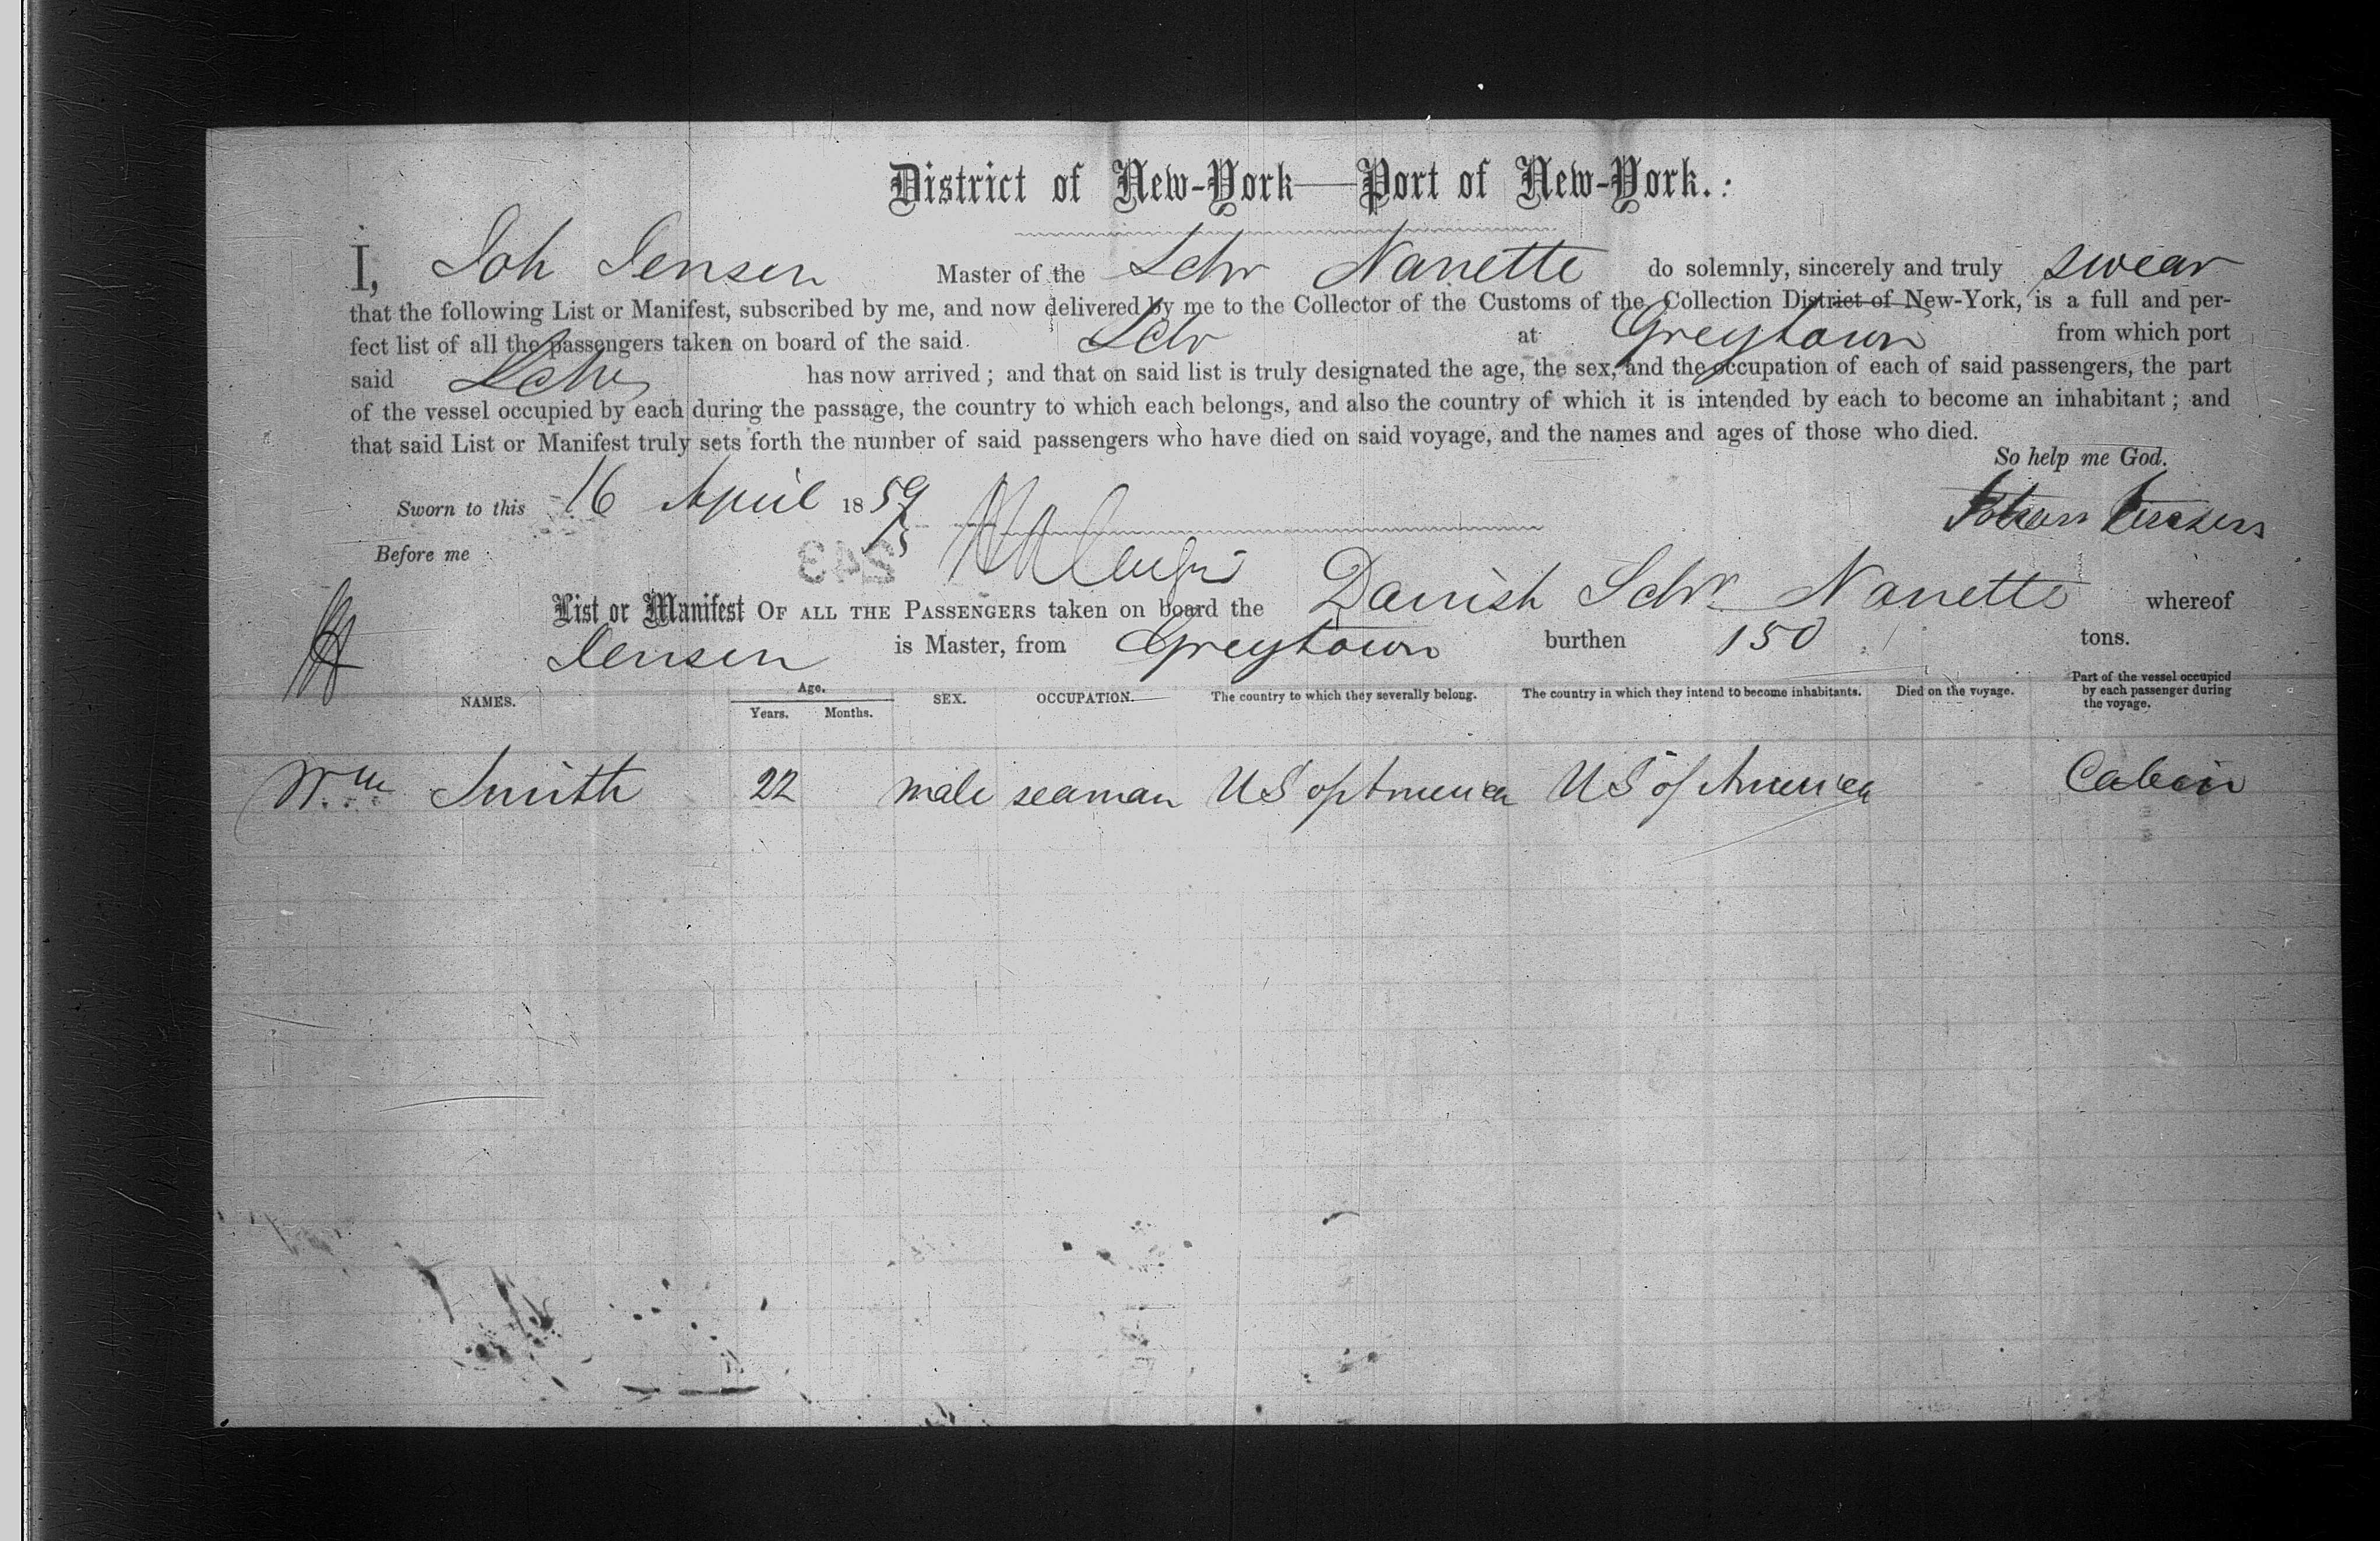 District of New-York—Port of New-York.:
I, Joh Jensen Master of the Schr Nanette do solemnly, sincerely and truly swear
that the following List or Manifest, subscribed by me, and now delivered by me to the Collector of the Customs of the Collection District of New-York, is a full and per-
fect list of all the passengers taken on board of the said Schr at Greytown from which port
said Schr has now arrived ; and that on said list is truly designated the age, the sex, and the occupation of each of said passengers, the part
of the vessel occupied by each during the passage, the country to which each belongs, and also the country of which it is intended by each to become an inhabitant ; and
that said List or Manifest truly sets forth the number of said passengers who have died on said voyage, and the names and ages of those who died.
So help me God.
Sworn to this 16 April 1859
Johan Jensen
Before me
243
List or Manifest OF ALL THE PASSENGERS taken on board the Danish Schr. Nanette whereof
Jensen is Master, from Greytown burthen 150 tons.
NAMES. Age. Years. Months. SEX. OCCUPATION. The country to which they severally belong. The country in which they intend to become inhabitants. Died on the voyage. Part of the vessel occupied by each passenger during the voyage.
Wm Smith 22 male seaman US of America US of America Cabin